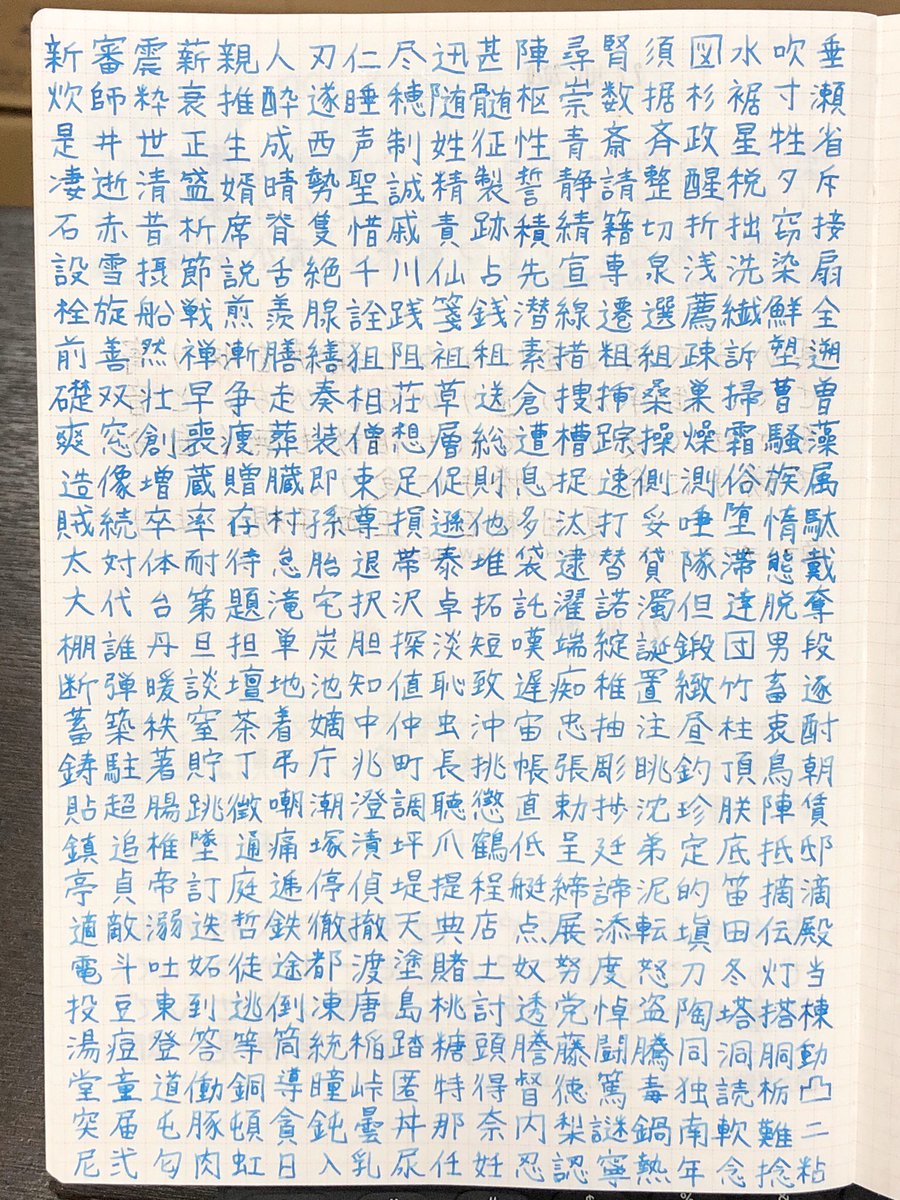 新審震薪親人刃仁尽迅甚陣尋腎須図水吹垂
炊帥粋衰推酔遂睡穂随髄枢崇数据杉裾寸瀬
是井世正生成西声制姓征性青斎斉政星牲省
凄逝清盛婿晴勢聖誠精製誓静請整醒税夕斥
石赤昔析席脊隻惜戚責跡積績籍切折拙窃接
設雪摂節説舌絶千川仙占先宣専泉浅洗染扇
栓旋船戦煎羨腺詮践箋銭潜線遷選薦繊鮮全
前善然禅漸膳繕狙阻祖租素措粗組疎訴塑遡
礎双壮早争走奏相荘草送倉捜挿桑巣掃曹曽
爽窓創喪痩葬装僧想層総遭槽踪操燥霜騒藻
造像増蔵贈臓即束足促則息捉速側測俗族属
賊続卒率存村孫尊損遜他多汰打妥唾堕惰駄
太対体耐待怠胎退帯泰堆袋逮替貸隊滞態戴
大代台第題滝宅択沢卓拓託濯諾濁但達脱奪
棚誰丹旦担単炭胆探淡短嘆端綻誕鍛団男段
断弾暖談壇地池知値恥致遅痴稚置緻竹畜逐
蓄築秩窒茶着嫡中仲虫沖宙忠抽注昼柱衷酎
鋳駐著貯丁弔庁兆町長挑帳張彫眺釣頂鳥朝
貼超腸跳徴嘲潮澄調聴懲直勅捗沈珍朕陳賃
鎮追椎墜通痛塚漬坪爪鶴低呈廷弟定底抵邸
亭貞帝訂庭逓停偵堤提程艇締諦泥的笛摘滴
適敵溺迭哲鉄徹撤天典店点展添転塡田伝殿
電斗吐妬徒途都渡塗賭土奴努度怒刀冬灯当
投豆東到逃倒凍唐島桃討透党悼盗陶塔搭棟
湯痘登答等筒統稲踏糖頭謄藤闘騰同洞胴動
堂童道働銅導瞳峠匿特得督徳篤毒独読栃凸
突届屯豚頓貪鈍曇丼那奈内梨謎鍋南軟難二
尼弐匂肉虹日入乳尿任妊忍認寧熱年念捻粘